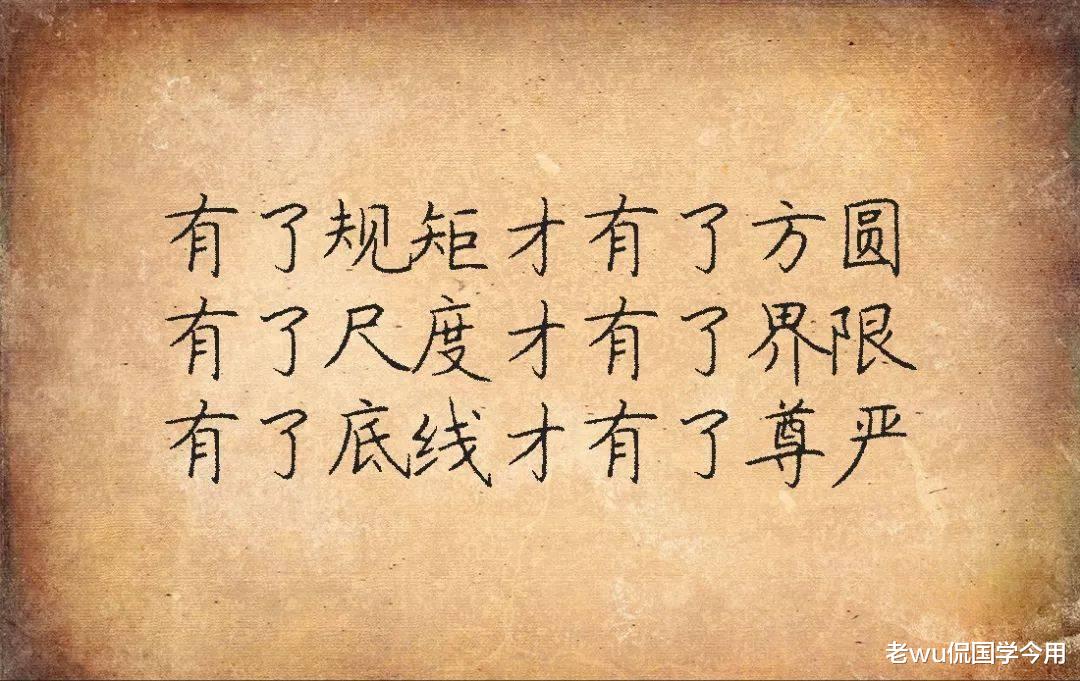 有了规矩才有了方圆
有了尺度才有了界限
有了底线才有了尊严
老wu侃国学今用